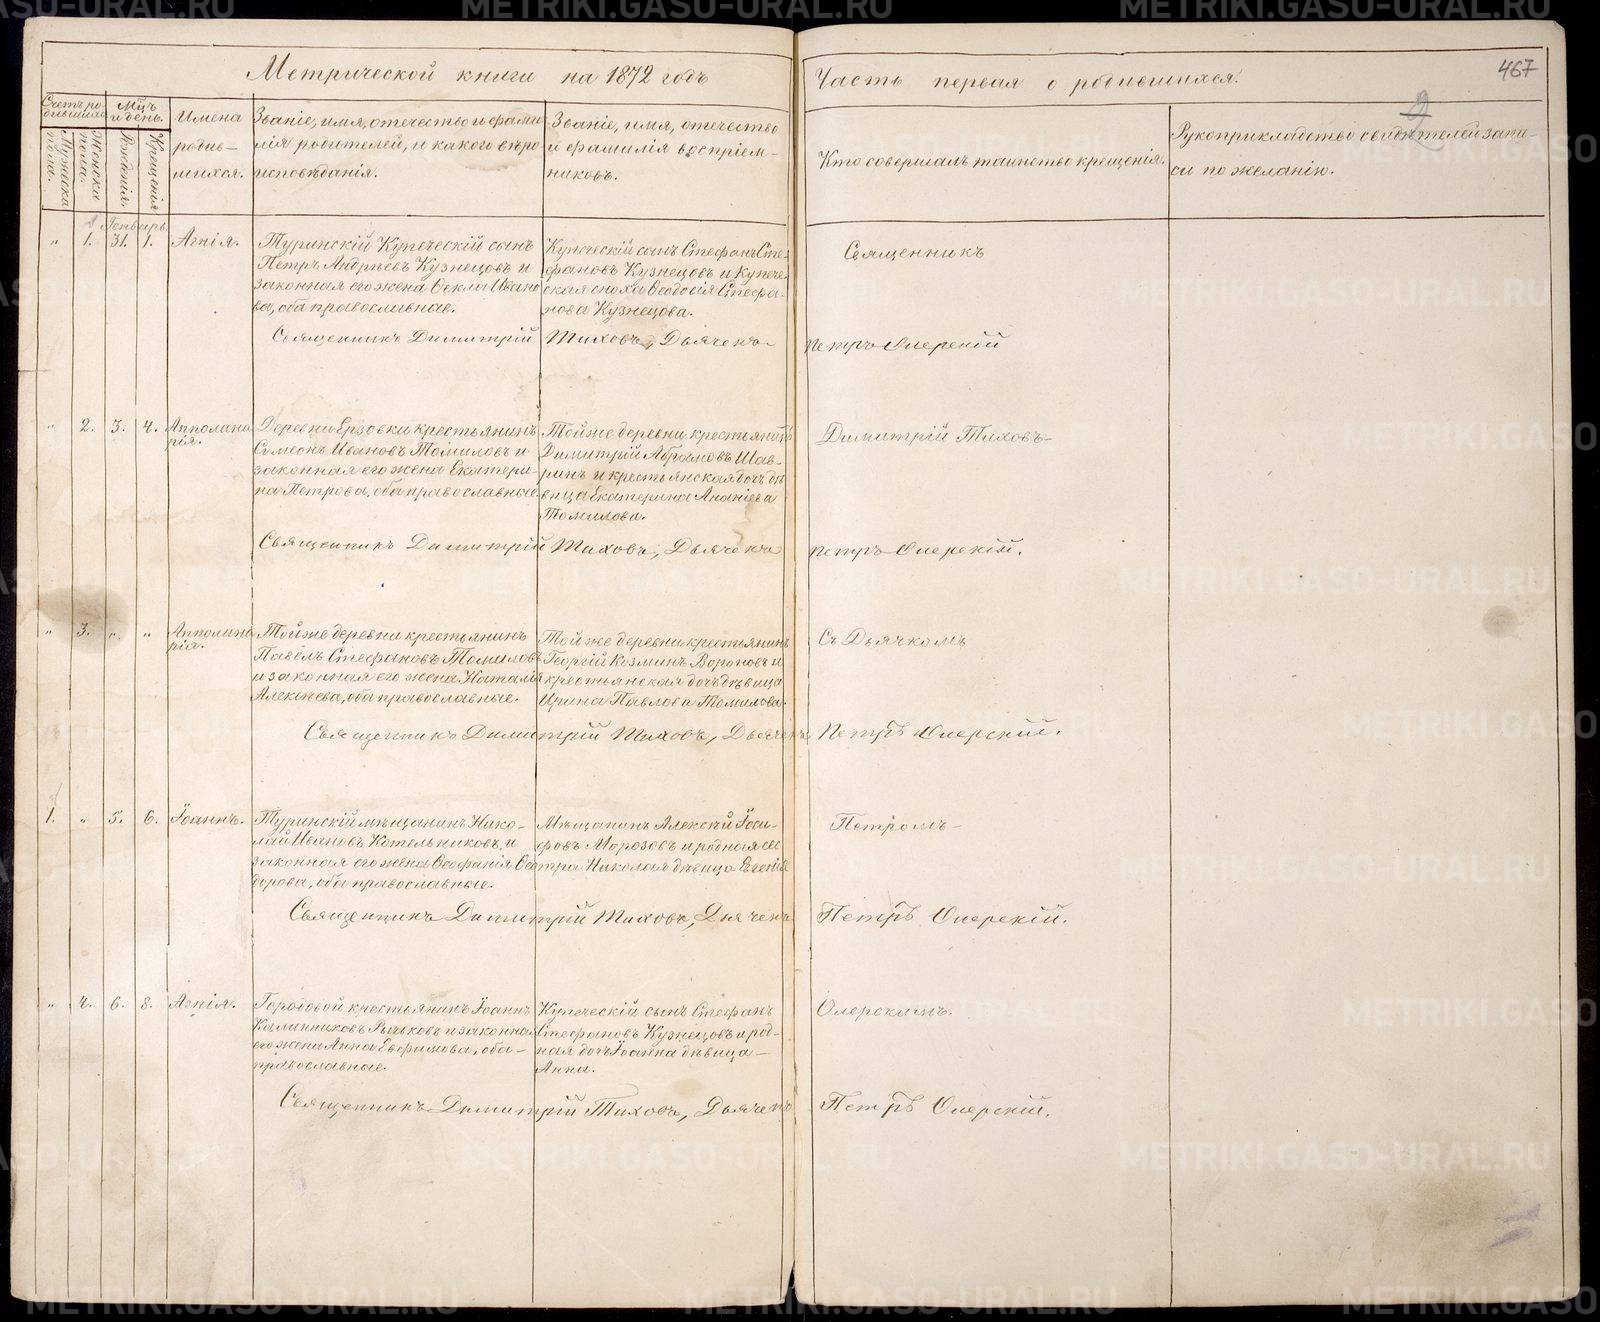 Метрической книги на 1872 годъ
Часть первая о родившихся.
467
2
Счетъ родившихся
Мѣсяцъ и день.
Мужеска пола.
Женска пола.
Рожденія.
Крещенія
Имена
родив-
шихся.
Званіе, имя, отечество и фами-
лія родителей, и какого вѣро-
исповѣданія.
Званіе, имя, отечество
и фамилія воспріем-
никовъ.
Кто совершалъ таинство крещенія.
Рукоприкладство свидѣтелей запи-
си по желанію.
Генварь
" 1. 31. 1. Агнія.
Туринскій Купеческій сынъ
Петръ Андреевъ Кузнецовъ и
законная его жена Ѳекла Ивано
ва, оба православные.
Купеческій сынъ Стефанъ Сте-
фановъ Кузнецовъ и Купече-
ская сноха Ѳеодосія Стефа-
нова Кузнецова.
Священникъ
Священникъ Димитрій Тиховъ, Дьячекъ Петръ Олерскій
" 2. 3. 4. Апполина
рія.
Деревни Ерзовки крестьянинъ
Симеонъ Ивановъ Томиловъ и
законная его жена Екатери-
на Петрова, оба православные.
Той же деревни крестьянинъ
Димитрій Абрамовъ Шав-
ринъ и крестьянская дочь дѣ
вица Екатерина Ананіева
Томилова.
Димитрій Тиховъ-
Священникъ Димитрій Тиховъ, Дьячекъ Петръ Олерскій.
" 3. " " Апполина
рія.
Той же деревни крестьянинъ
Павелъ Стефановъ Томиловъ
и законная его жена Наталія
Алексѣева, оба православные.
Той же деревни крестьянинъ
Георгій Козминъ Вороновъ и
крестьянская дочь дѣвица
Ирина Павлова Томилова.
Съ Дьячкомъ
Священникъ Димитрій Тиховъ, Дьячекъ Петръ Олерскій.
1. " 5. 6. Іоаннъ.
Туринскій мѣщанинъ Нико-
лай Ивановъ Котельниковъ, и
законная его жена Ѳеофанія Ѳео
дорова, оба православные.
Мѣщанинъ Алексѣй Іоси-
фовъ Морозовъ и родная се
стра Николая дѣвица Евгенія
Петромъ-
Священникъ Димитрій Тиховъ, Дьячекъ Петръ Олерскій.
" 4. 6. 8. Агнія.
Городовой крестьянинъ Іоаннъ
Калинниковъ Рычковъ и законная
его жена Анна Евфимова, оба-
православные.
Купеческій сынъ Стефанъ
Стефановъ Кузнецовъ и род-
ная дочь Іоанна дѣвица-
Анна.
Олерскимъ.
Священникъ Димитрій Тиховъ, Дьячекъ Петръ Олерскій.
METRIKI.GASO-URAL.RU